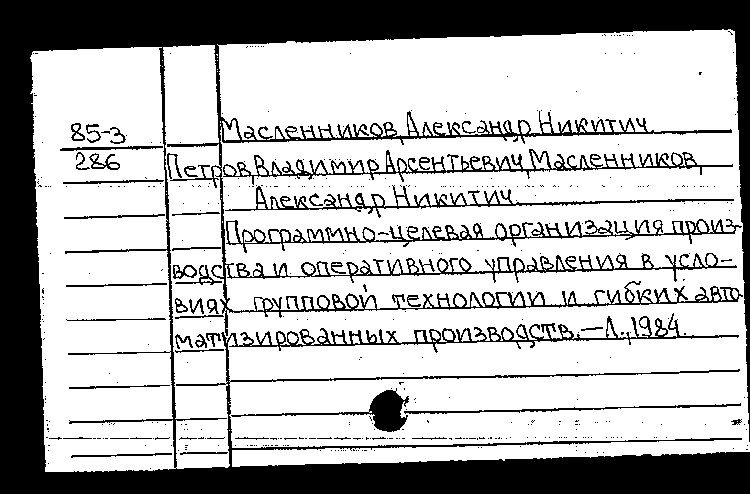 85-3 Масленников, Александр Никитич.
286 Петров, Владимир Арсентьевич, Масленников,
Александр Никитич.
Программно-целевая организация произ-
водства и оперативного управления в усло-
виях групповой технологии и гибких авто-
матизированных производств.—Л., 1984.